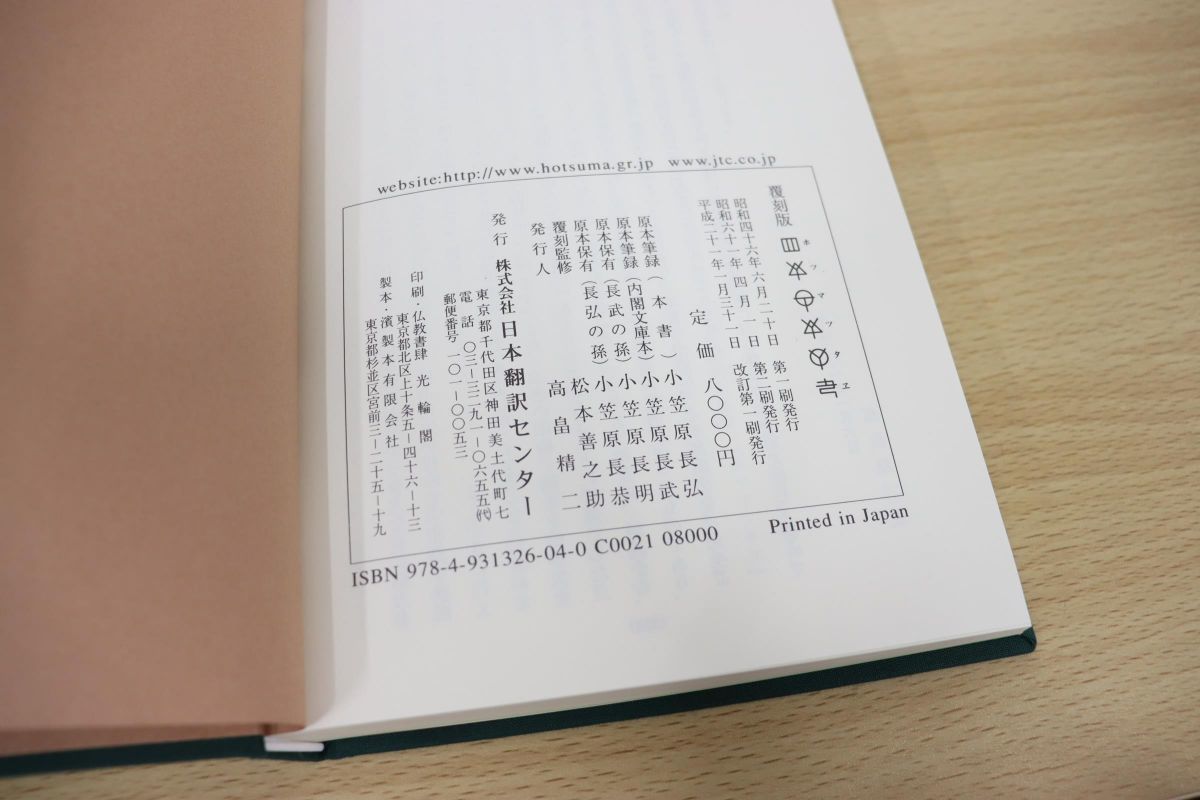 website:http://www.hotsuma.gr.jp www.jtc.co.jp
覆刻版 ホツマツタヱ
昭和四十六年六月二十日 第一刷発行
昭和六十一年四月一日 第二刷発行
平成二十一年一月三十一日 改訂第一刷発行
定価 八〇〇〇円
原本筆録(本書) 小笠原長弘
原本筆録(内閣文庫本) 小笠原長武
原本保有(長武の孫) 小笠原長明
原本保有(長弘の孫) 小笠原長恭
覆刻監修 松本善之助
発行人 高畠精二
発行 株式会社日本翻訳センター
東京都千代田区神田美土代町七
電話 〇三―三二九一―〇六五五(代)
郵便番号 一〇一―〇〇五三
印刷・仏教書肆 光輪閣
東京都北区上十条五―四十六―十三
製本・濱製本有限会社
東京都杉並区宮前三―二十五―十九
ISBN 978-4-931326-04-0 C0021 08000
Printed in Japan